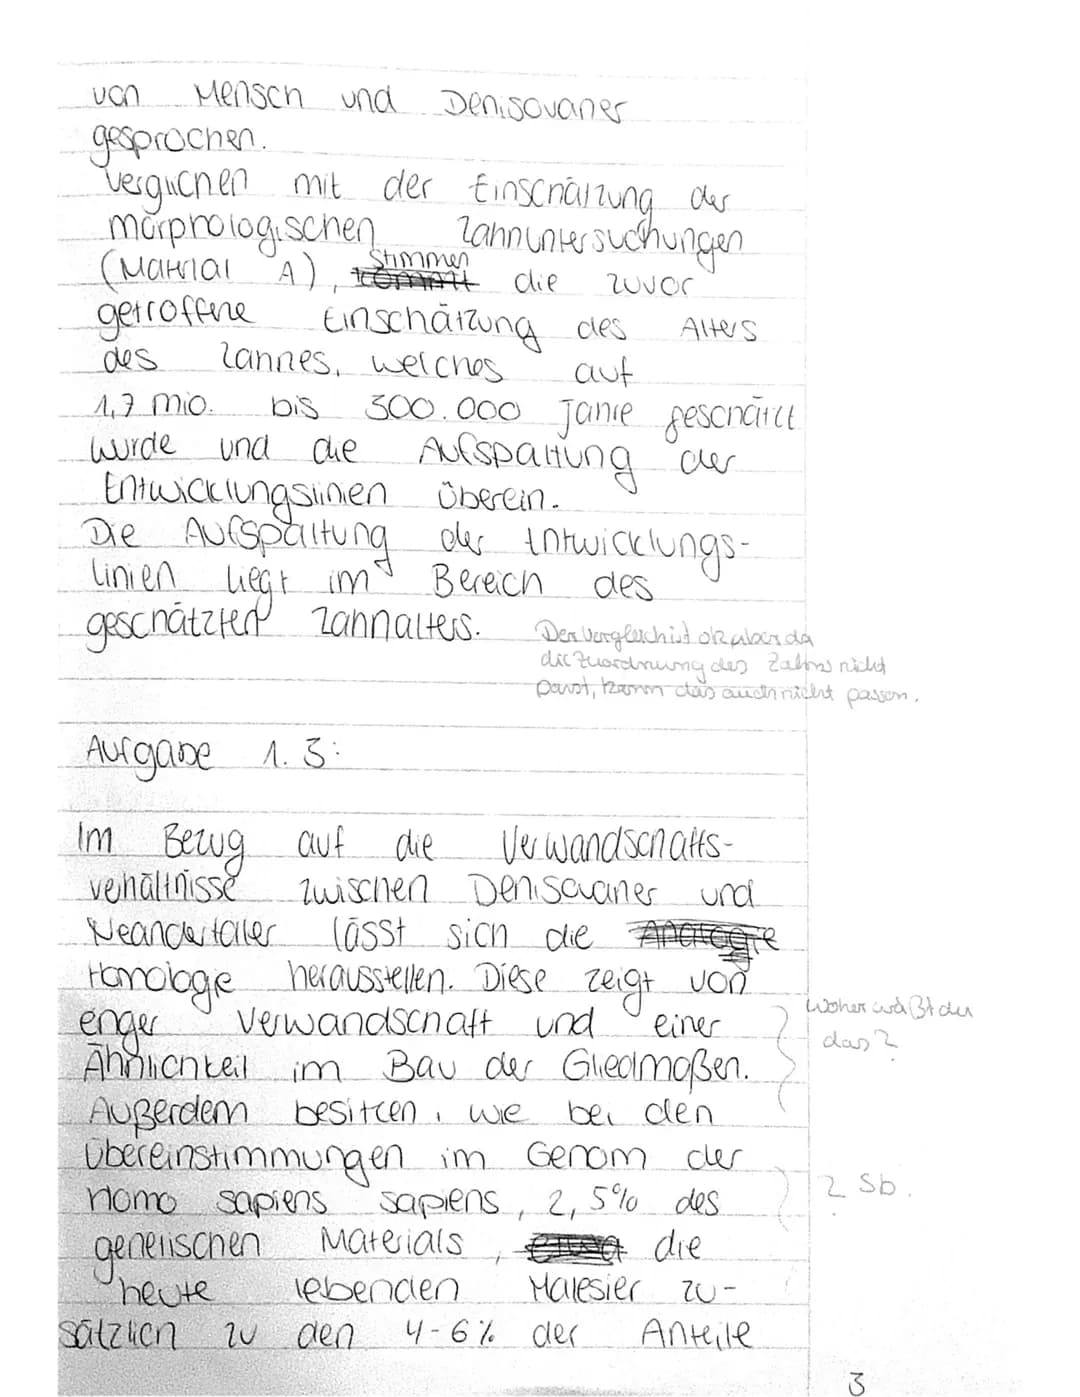 von Mensch und Denisovaner
gesprochen.
Verglichen mit der Einschätzung der
morphologischen Zahnuntersuchungen
(Material A), stimmen die zuvor
getroffene Einschätzung des Alters
des Zahnes, welches auf
1,7 mio. bis 300.000 Jahre geschätzt
wurde und die Aufspaltung der
Entwicklungslinien überein.
Die Aufspaltung der Entwicklungs-
linien liegt im Bereich des
geschätzten Zahnalters.
Der Vergleich ist ok aber da
die Zuordnung des Zahns nicht
passt, kann das auch nicht passen.
Aufgabe 1.3:
Im Bezug auf die Verwandschafts-
verhältnisse zwischen Denisovaner und
Neandertaler lässt sich die Analogie
Homologie herausstellen. Diese zeigt von
enger Verwandschaft und einer
Ähnlichkeit im Bau der Gliedmaßen.
Woher weißt du
das?
Außerdem besitzen, wie bei den
Übereinstimmungen im Genom der
Homo sapiens sapiens, 2,5% des
? Sb.
genetischen Materials, etwa die
heute lebenden Malesier zu-
sätzlich zu den 4-6% der Anteile
3